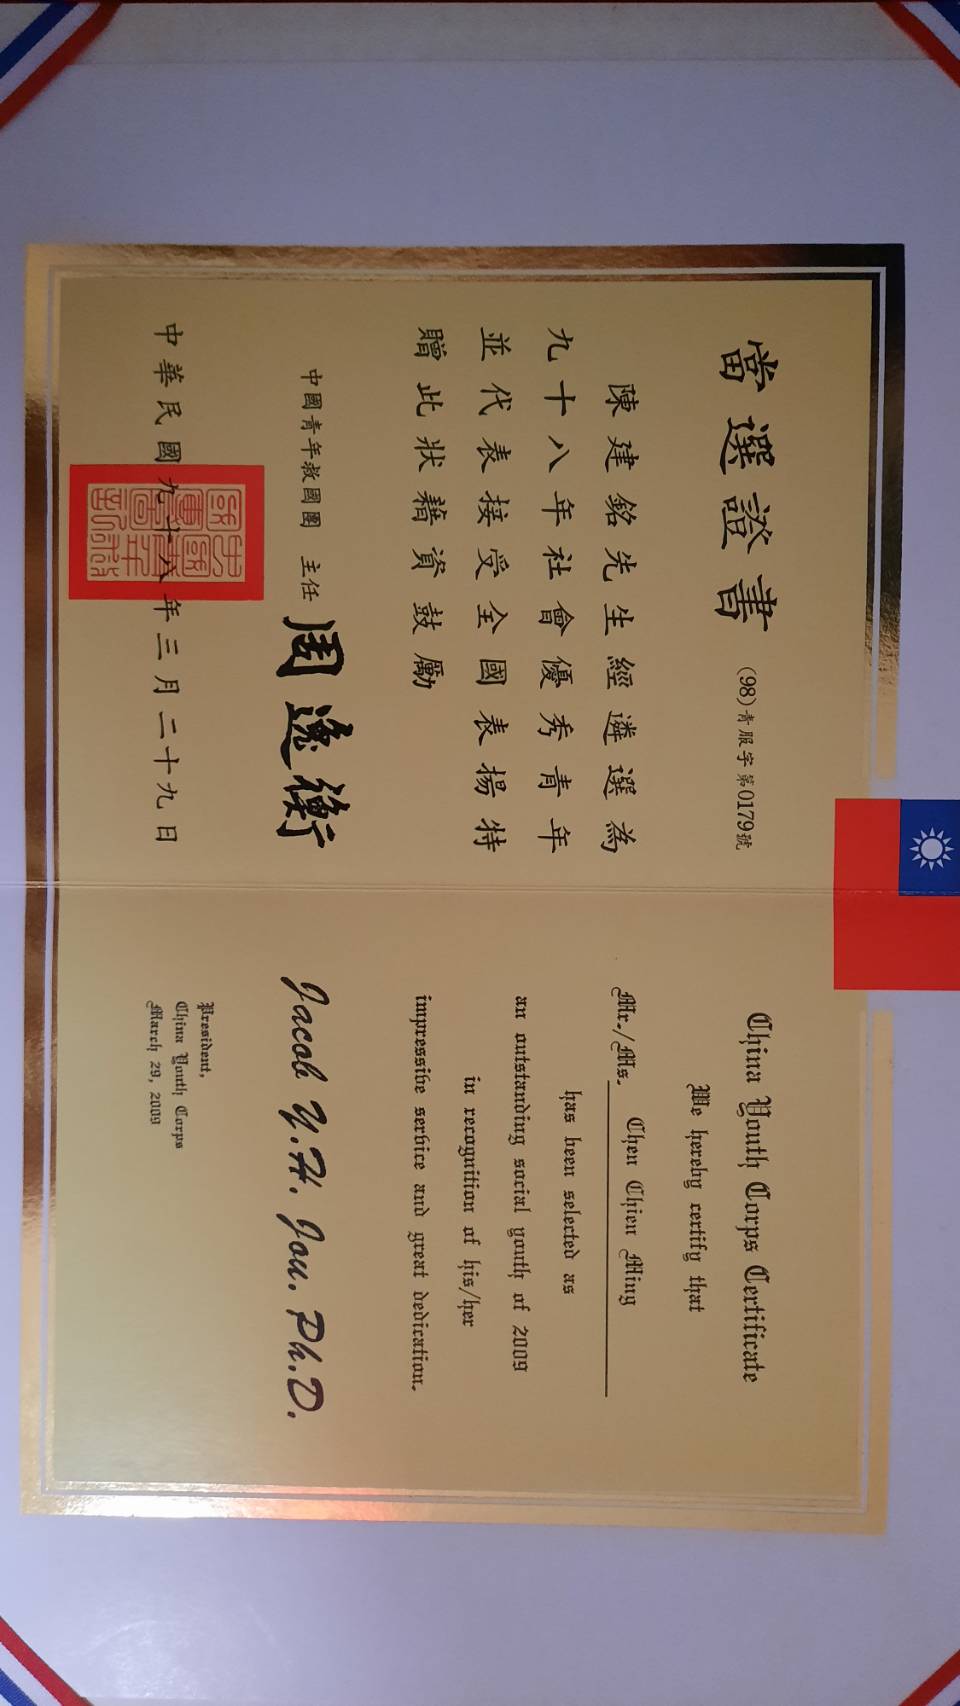 當選證書 (98)青服字第0179號
陳建銘先生經遴選為
九十八年社會優秀青年
並代表接受全國表揚特
贈此狀藉資鼓勵
中國青年救國團 主任 周逸衡
中華民國九十八年三月二十九日
China Youth Corps Certificate
We hereby certify that
Mr./Ms. Chen Chien Ming
has been selected as
an outstanding social youth of 2009
in recognition of his/her
impressive service and great dedication.
Jacob Y.H. Jou. Ph.D.
President,
China Youth Corps
March 29, 2009